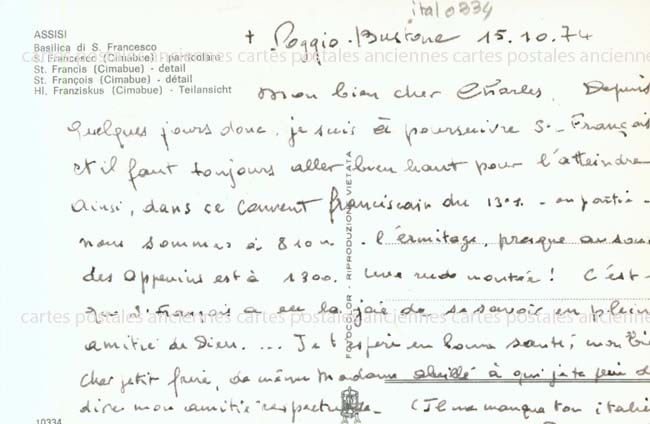 ital0334
ASSISI
Basilica di S. Francesco
S. Francesco (Cimabue) - particolare
St. Francis (Cimabue) - detail
St. François (Cimabue) - détail
Hl. Franziskus (Cimabue) - Teilansicht
+ Poggio-Bustone 15.10.74
Mon bien cher Charles. Depuis
quelques jours donc, je suis à poursuivre S. François
et il faut toujours aller bien haut pour l'atteindre
Ainsi, dans ce Couvent franciscain du 13e s. - en partie -
nous sommes à 810 m. l'érmitage, presque au som
des Appenins est à 1300. Une rude montée ! C'est
que S. François a eu la joie de se savoir en plein
amitié de Dieu. ... Je t'espère en bonne santé, mon bi
cher petit frère, de même Madame à qui je te prie d
dire mon amitié respectueuse. (Il me manque ton italie
FOTOCOLOR - RIPRODUZIONE VIETATA
10334
cartes postales anciennes cartes postales anciennes cartes postales anciennes
cartes postales anciennes cartes postales anciennes cartes postales anciennes